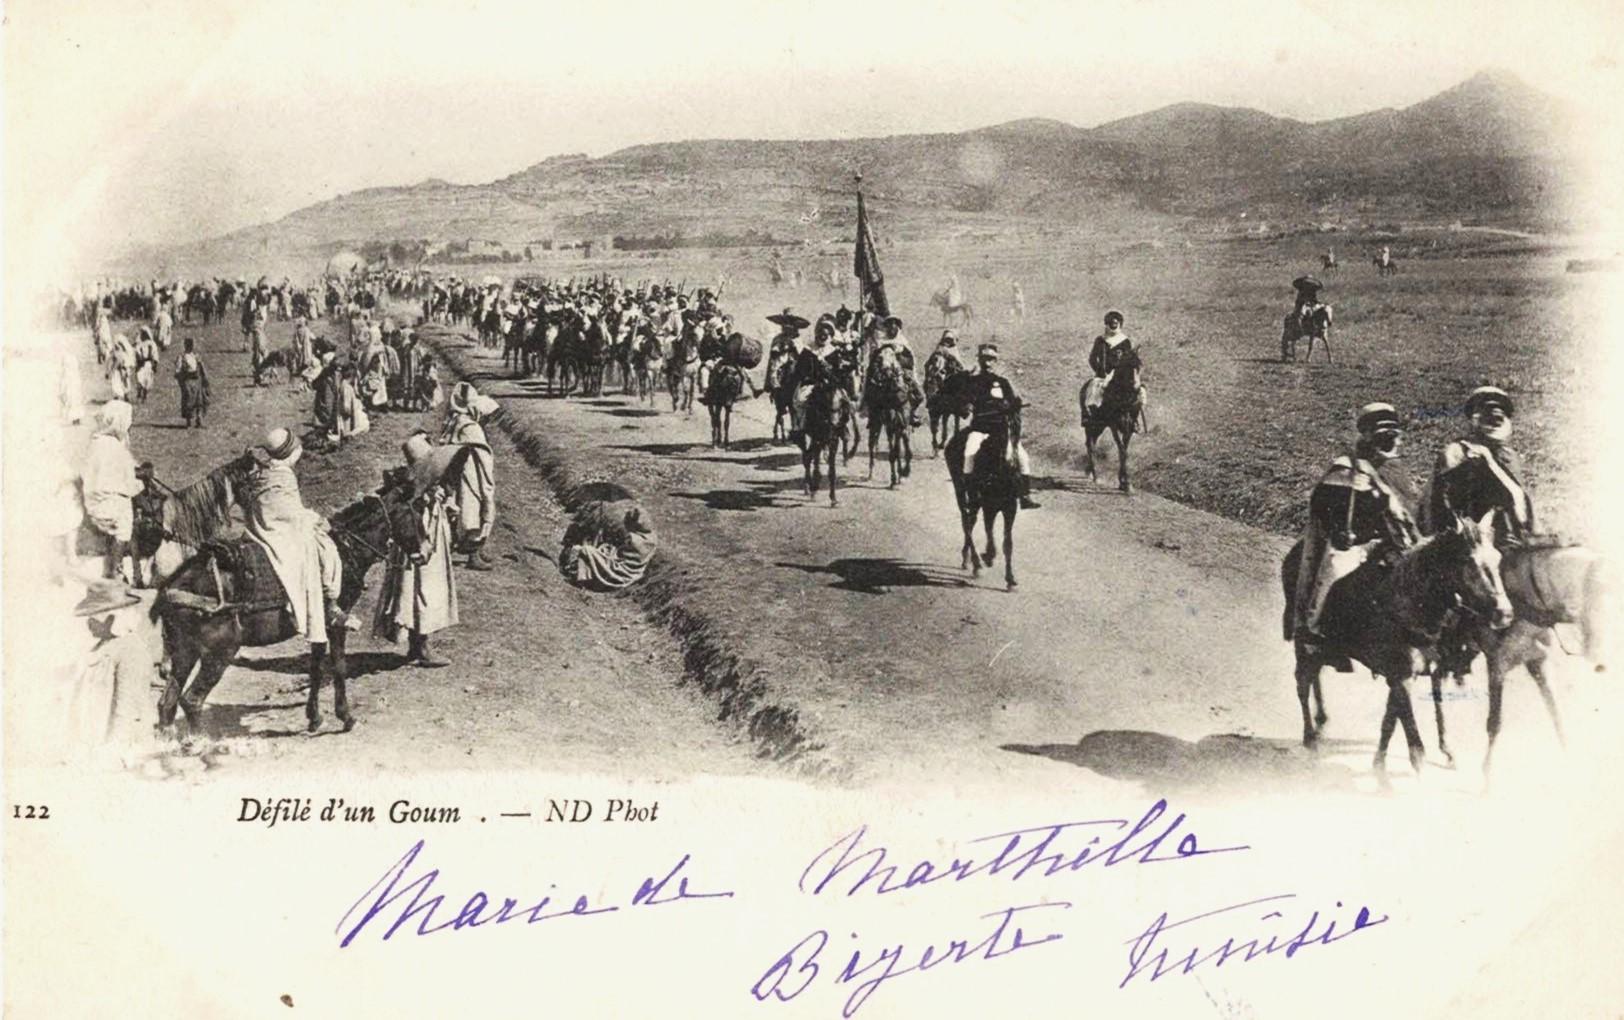 122 Défilé d'un Goum . — ND Phot
Marie de Marthille
Bizerte Tunisie